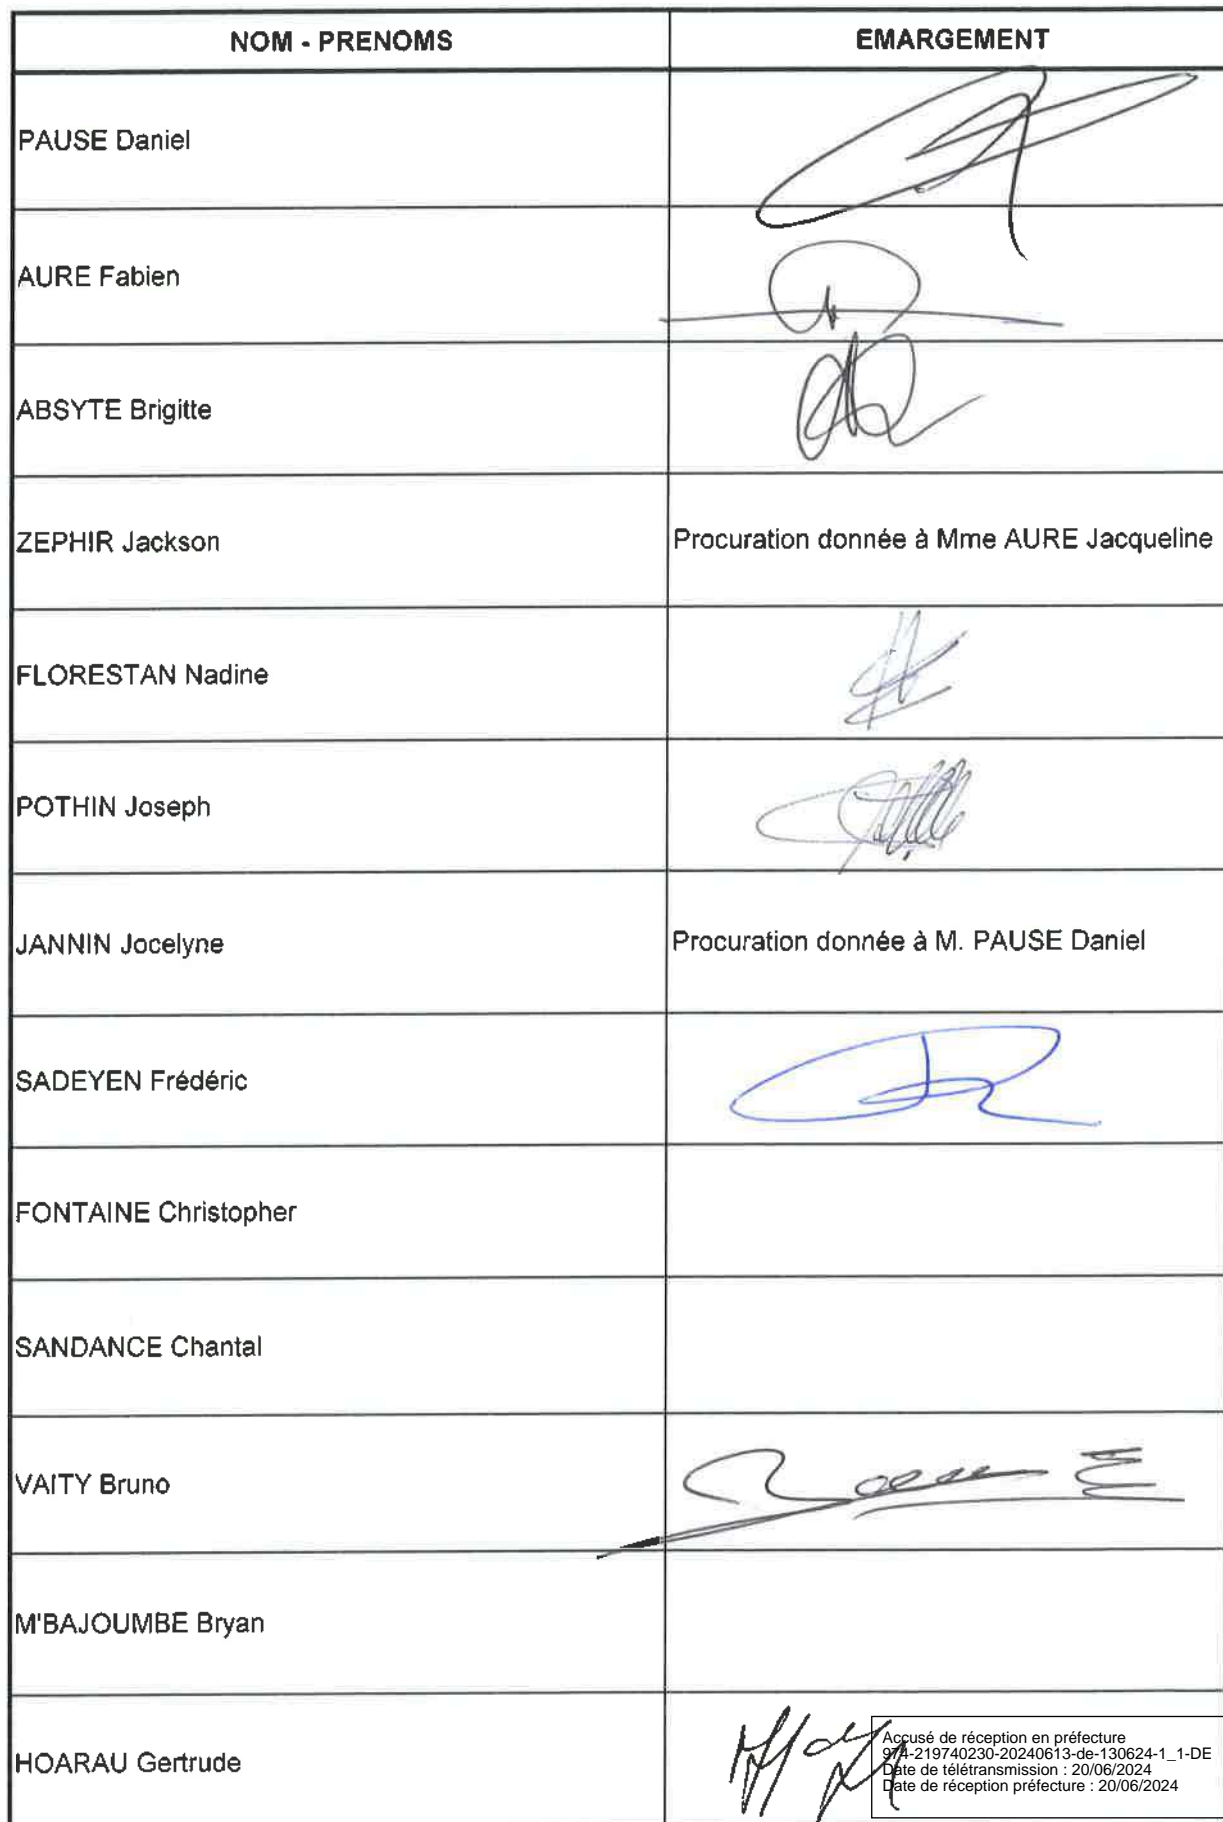 NOM - PRENOMS EMARGEMENT
PAUSE Daniel
AURE Fabien
ABSYTE Brigitte
ZEPHIR Jackson Procuration donnée à Mme AURE Jacqueline
FLORESTAN Nadine
POTHIN Joseph
JANNIN Jocelyne Procuration donnée à M. PAUSE Daniel
SADEYEN Frédéric
FONTAINE Christopher
SANDANCE Chantal
VAITY Bruno
M'BAJOUMBE Bryan
HOARAU Gertrude
Accusé de réception en préfecture
974-219740230-20240613-de-130624-1_1-DE
Date de télétransmission : 20/06/2024
Date de réception préfecture : 20/06/2024